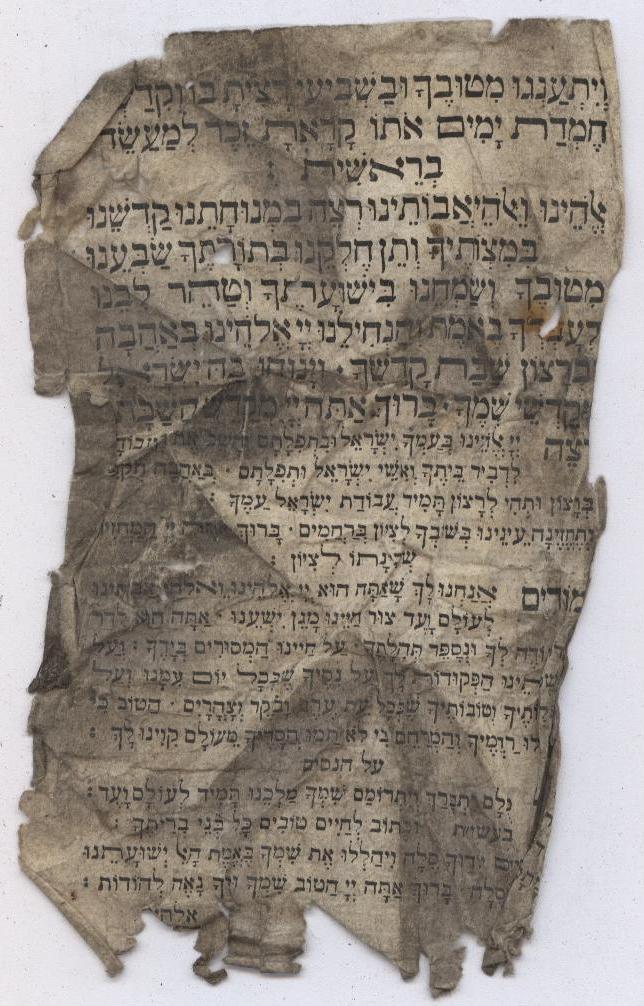 וְיִתְעַנְּגוּ מִטּוּבֶךָ וּבַשְּׁבִיעִי רָצִיתָ בּוֹ וְקִדַּשְׁ
חֶמְדַּת יָמִים אֹתוֹ קָרָאתָ זֵכֶר לְמַעֲשֵׂה
בְרֵאשִׁית :
אֱלֹהֵינוּ וֵאלֹהֵי אֲבוֹתֵינוּ רְצֵה בִמְנוּחָתֵנוּ קַדְּשֵׁנוּ
בְּמִצְוֹתֶיךָ וְתֵן חֶלְקֵנוּ בְּתוֹרָתֶךָ שַׂבְּעֵנוּ
מִטּוּבֶךָ וְשַׂמְּחֵנוּ בִּישׁוּעָתֶךָ וְטַהֵר לִבֵּנוּ
לְעָבְדְּךָ בֶּאֱמֶת וְהַנְחִילֵנוּ יְיָ אֱלֹהֵינוּ בְּאַהֲבָה
וּבְרָצוֹן שַׁבַּת קָדְשֶׁךָ · וְיָנוּחוּ בָהּ יִשְׂרָאֵל
מְקַדְּשֵׁי שְׁמֶךָ · בָּרוּךְ אַתָּה יְיָ מְקַדֵּשׁ הַשַּׁבָּת
רְצֵה יְיָ אֱלֹהֵינוּ בְּעַמְּךָ יִשְׂרָאֵל וּבִתְפִלָּתָם וְהָשֵׁב אֶת הָעֲבוֹדָה
לִדְבִיר בֵּיתֶךָ וְאִשֵּׁי יִשְׂרָאֵל וּתְפִלָּתָם · בְּאַהֲבָה תְקַבֵּל
בְּרָצוֹן וּתְהִי לְרָצוֹן תָּמִיד עֲבוֹדַת יִשְׂרָאֵל עַמֶּךָ :
וְתֶחֱזֶינָה עֵינֵינוּ בְּשׁוּבְךָ לְצִיּוֹן בְּרַחֲמִים · בָּרוּךְ אַתָּה יְיָ הַמַּחֲזִיר
שְׁכִינָתוֹ לְצִיּוֹן :
מוֹדִים אֲנַחְנוּ לָךְ שָׁאַתָּה הוּא יְיָ אֱלֹהֵינוּ וֵאלֹהֵי אֲבוֹתֵינוּ
לְעוֹלָם וָעֶד צוּר חַיֵּינוּ מָגֵן יִשְׁעֵנוּ · אַתָּה הוּא לְדֹר
נוֹדֶה לְךָ וּנְסַפֵּר תְּהִלָּתֶךָ · עַל חַיֵּינוּ הַמְּסוּרִים בְּיָדֶךָ : וְעַל
הַפְּקוּדוֹת לָךְ עַל נִסֶּיךָ שֶׁבְּכָל יוֹם עִמָּנוּ וְעַל
וְטוֹבוֹתֶיךָ שֶׁבְּכָל עֵת עֶרֶב וָבֹקֶר וְצָהֳרָיִם · הַטּוֹב כִּי
לֹא כָלוּ רַחֲמֶיךָ וְהַמְרַחֵם כִּי לֹא תַמּוּ חֲסָדֶיךָ מֵעוֹלָם קִוִּינוּ לָךְ :
עַל הַנִּסִּים
כֻּלָּם יִתְבָּרַךְ וְיִתְרוֹמַם שִׁמְךָ מַלְכֵּנוּ תָּמִיד לְעוֹלָם וָעֶד :
בעשי״ת וּכְתוֹב לְחַיִּים טוֹבִים כָּל בְּנֵי בְרִיתֶךָ :
יוֹדוּךָ סֶּלָה וִיהַלְלוּ אֶת שִׁמְךָ בֶּאֱמֶת הָאֵל יְשׁוּעָתֵנוּ
סֶלָה בָּרוּךְ אַתָּה יְיָ הַטּוֹב שִׁמְךָ וּלְךָ נָאֶה לְהוֹדוֹת :